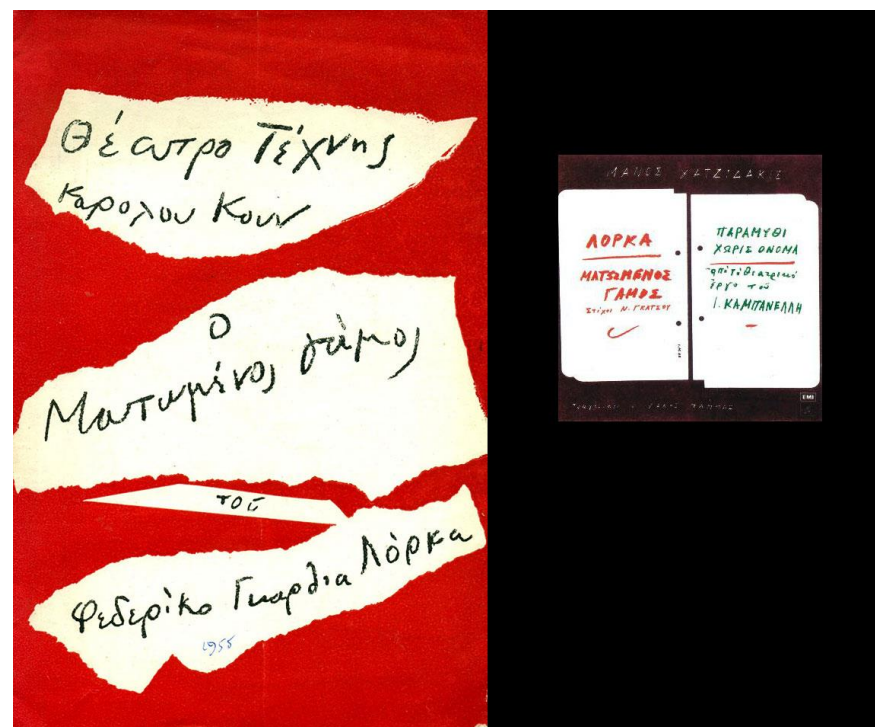 Θέατρο Τέχνης
Καρόλου Κουν
Ο
Ματωμένος γάμος
τοῦ
Φεδερίκο Γκαρθια Λόρκα
1955
ΜΑΝΟΣ ΧΑΤΖΙΔΑΚΙΣ
ΛΟΡΚΑ
ΜΑΤΩΜΕΝΟΣ
ΓΑΜΟΣ
Στίχοι Ν. ΓΚΑΤΣΟΥ
ΠΑΡΑΜΥΘΙ
ΧΩΡΙΣ ΟΝΟΜΑ
ἀπό τό θεατρικό
ἔργο τοῦ
Ι. ΚΑΜΠΑΝΕΛΛΗ
EMI